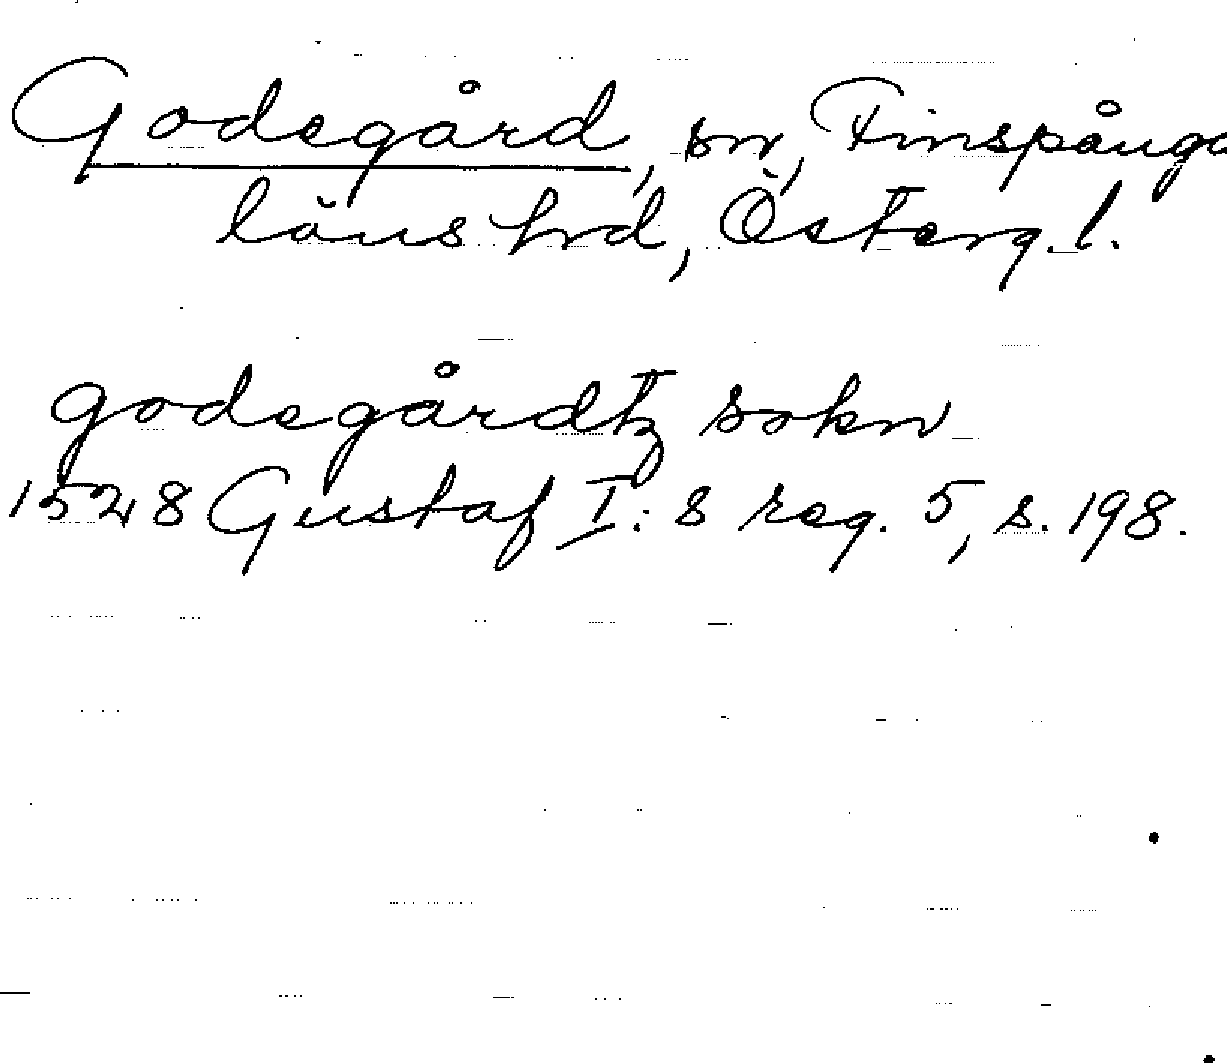 Godegård, sn, Finspånga
läns hrd, Österg. l.
godegårdtz sokn
1528 Gustaf I: s reg. 5, s. 198.